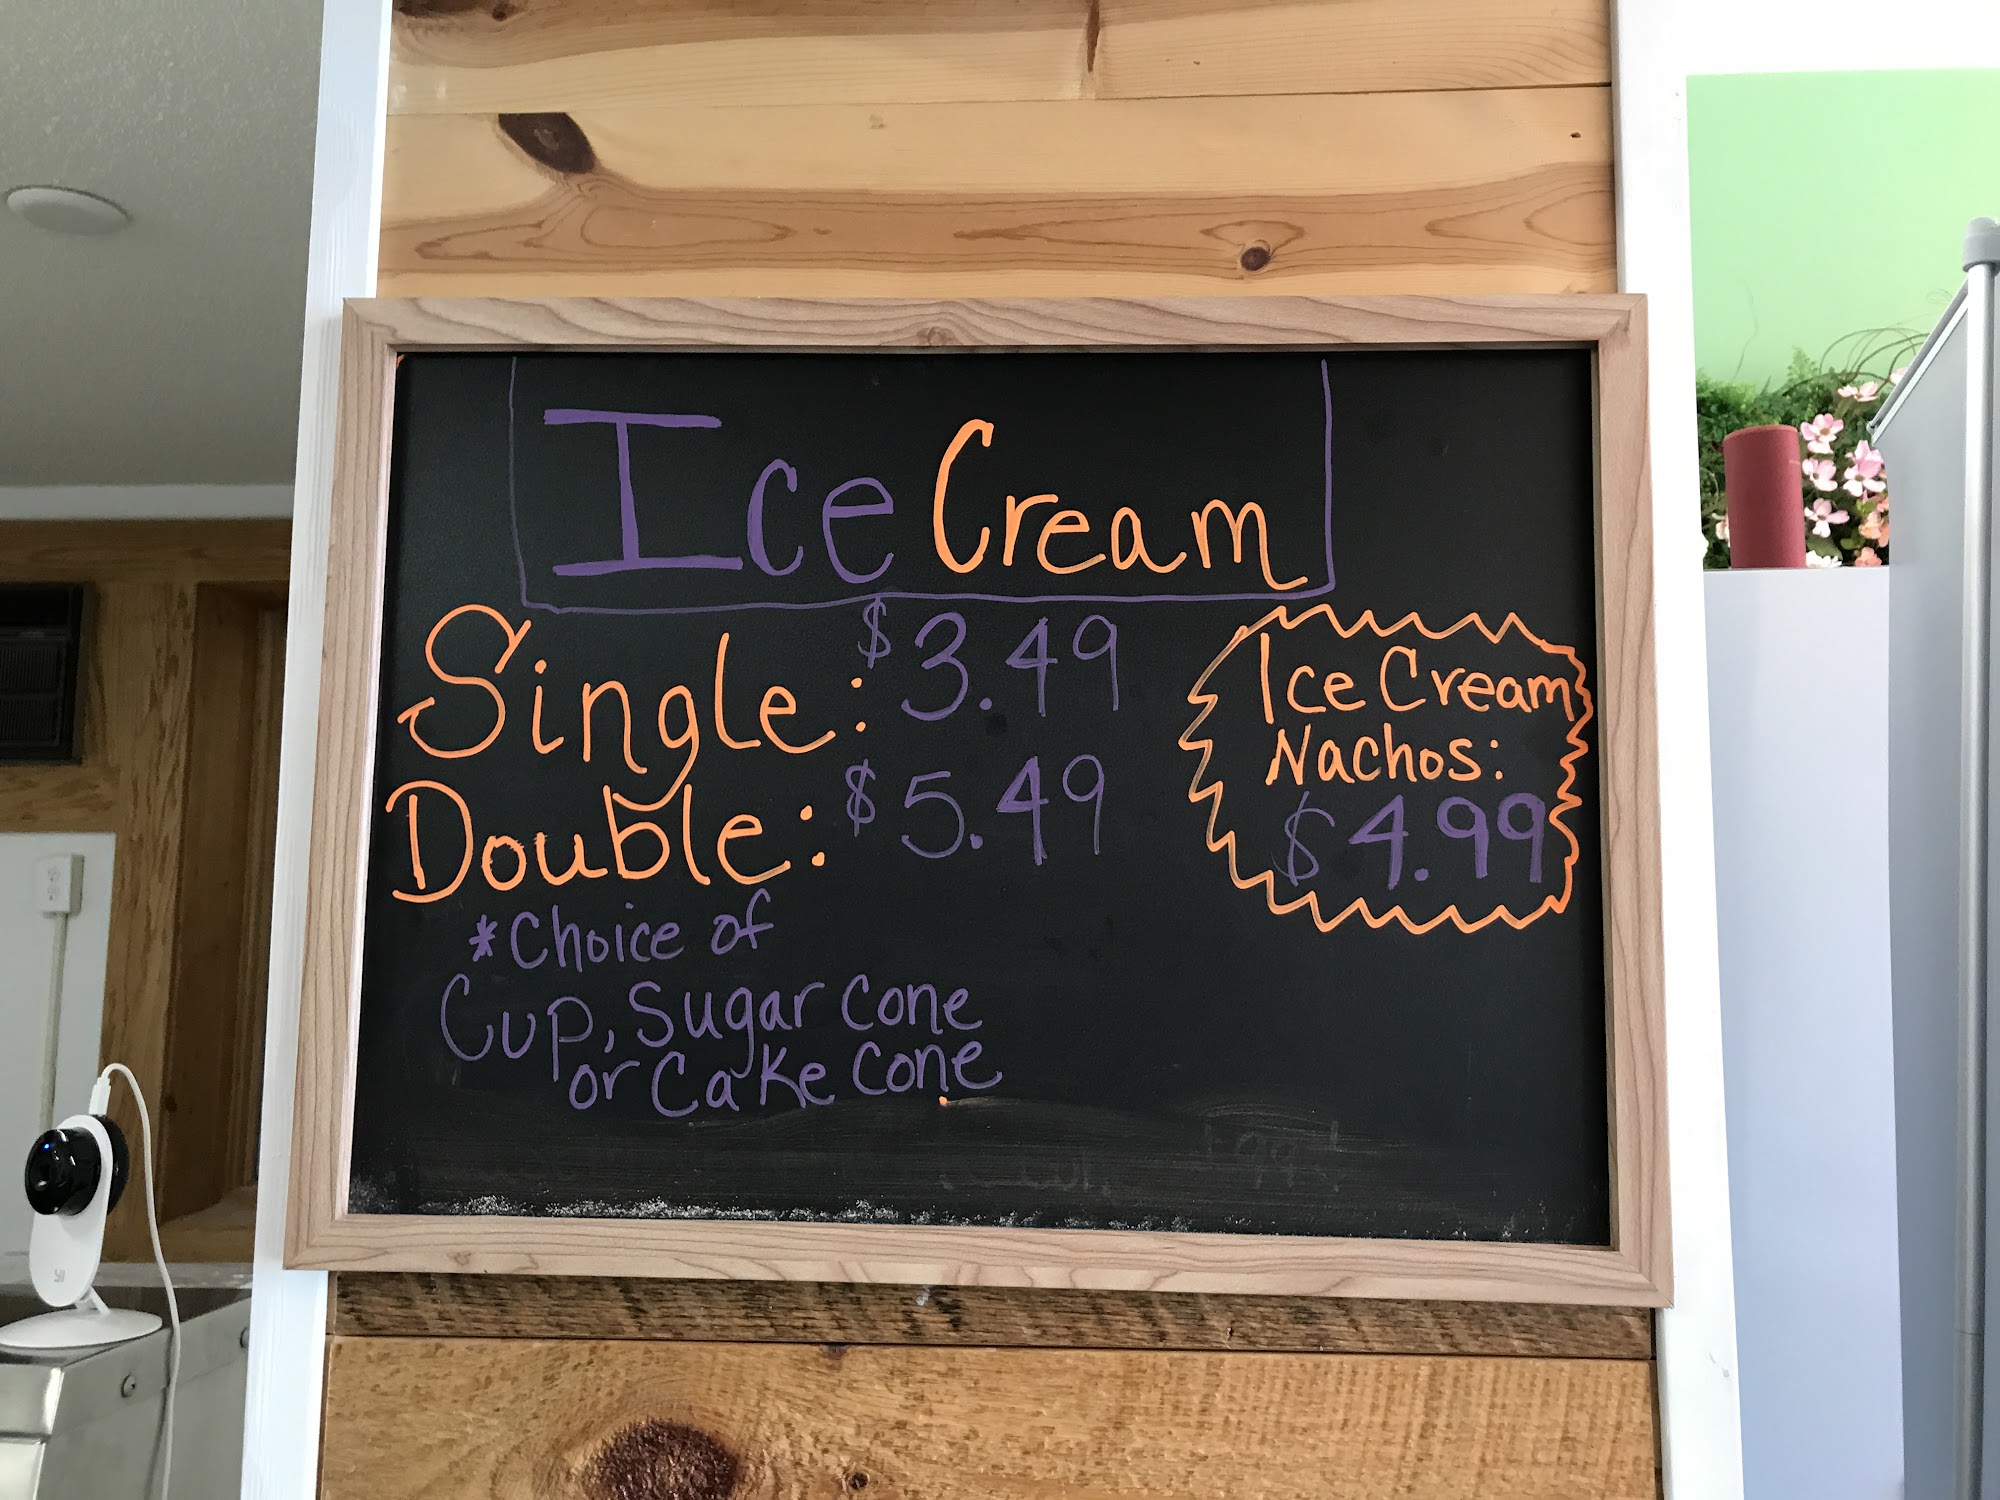 Ice Cream
Single: $3.49
Double: $5.49
*Choice of
Cup, Sugar cone
or Cake cone
Ice Cream
Nachos:
$4.99